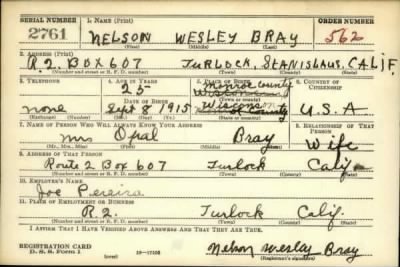 SERIAL NUMBER 1. NAME (Print) ORDER NUMBER
2761 NELSON WESLEY BRAY 562
(First) (Middle) (Last)
2. ADDRESS (Print)
R.2. BOX 607 TURLOCK, STANISLAUS, CALIF.
(Number and street or R. F. D. number) (Town) (County) (State)
3. TELEPHONE 4. AGE IN YEARS 5. PLACE OF BIRTH 6. COUNTRY OF CITIZENSHIP
25 Monroe County
DATE OF BIRTH (Town or county)
none Sept 8 1915 Wisconsin U.S.A
(Exchange) (Number) (Mo.) (Day) (Yr.) (State or country)
7. NAME OF PERSON WHO WILL ALWAYS KNOW YOUR ADDRESS 8. RELATIONSHIP OF THAT PERSON
Mrs Opal Bray Wife
(Mr., Mrs., Miss) (First) (Middle) (Last)
9. ADDRESS OF THAT PERSON
Route 2 Box 607 Turlock Calif
(Number and street or R. F. D. number) (Town) (County) (State)
10. EMPLOYER'S NAME
Joe Pereira
11. PLACE OF EMPLOYMENT OR BUSINESS
R.2. Turlock Calif.
(Number and street or R. F. D. number) (Town) (County) (State)
I AFFIRM THAT I HAVE VERIFIED ABOVE ANSWERS AND THAT THEY ARE TRUE.
REGISTRATION CARD
D. S. S. Form 1 (over) 16—17105 Nelson Wesley Bray
(Registrant's signature)